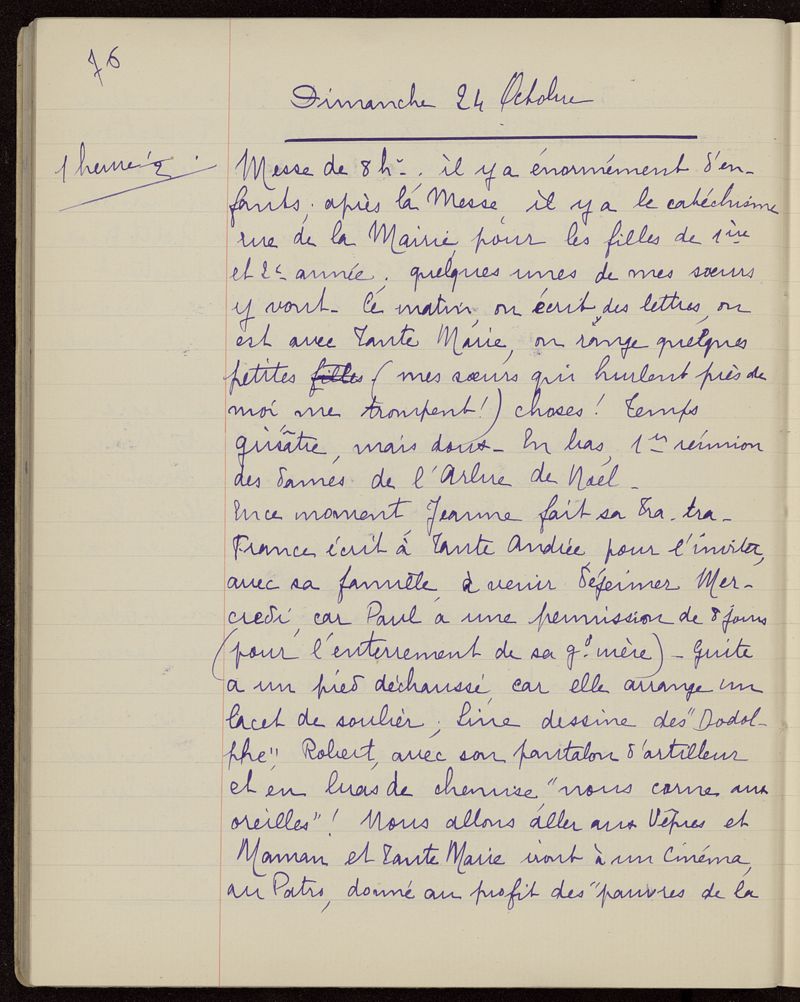 76
Dimanche 24 Octobre
1 heure ½.
Messe de 8 h. il y a énormément d'en-
fants; après la Messe il y a le catéchisme
rue de la Mairie, pour les filles de 1ère
et 2e année; quelques unes de mes sœurs
y vont. Ce matin, on écrit des lettres, on
est avec Tante Marie, on range quelques
petites filles (mes sœurs qui hurlent près de
moi me trompent!) choses! Temps
grisâtre, mais doux. En bas, 1re réunion
des dames de l'Arbre de Noël.
En ce moment, Jeanne fait sa tra-tra-
France écrit à Tante Andrée pour l'inviter,
avec sa famille, à venir déjeuner Mer-
credi, car Paul a une permission de 8 jours
(pour l'enterrement de sa gd mère) - Guite
a un pied déchaussé, car elle arrange un
lacet de soulier; Line dessine des "Dodol-
phe", Robert, avec son pantalon d'artilleur
et en bras de chemise, "nous corne aux
oreilles"! Nous allons aller aux Vêpres et
Maman et Tante Marie iront à un Cinéma,
au Patro, donné au profit des "pauvres de la